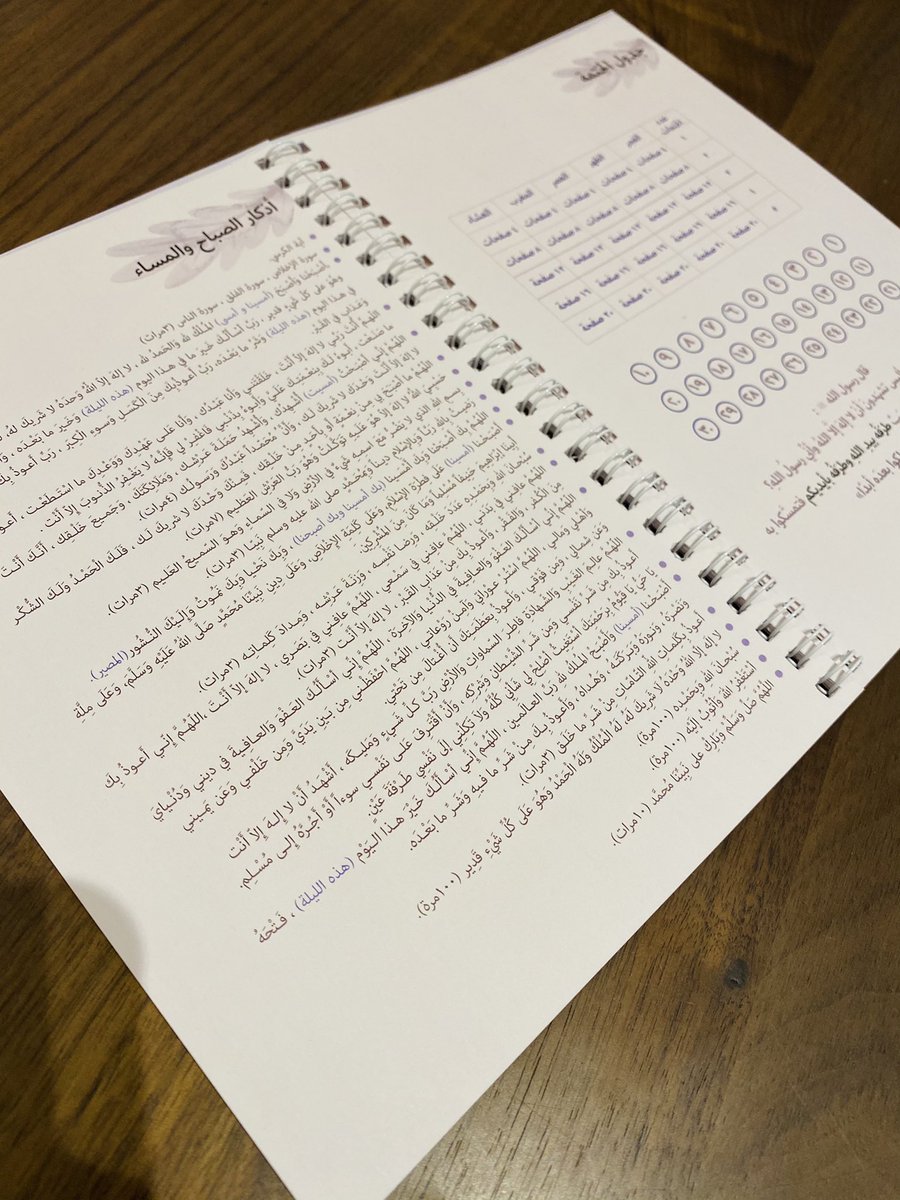 جدول الختمة
عدد الختمات الفجر الظهر العصر المغرب العشاء
١ ٤ صفحات ٤ صفحات ٤ صفحات ٤ صفحات ٤ صفحات
٢ ٨ صفحات ٨ صفحات ٨ صفحات ٨ صفحات ٨ صفحات
٣ ١٢ صفحة ١٢ صفحة ١٢ صفحة ١٢ صفحة ١٢ صفحة
٤ ١٦ صفحة ١٦ صفحة ١٦ صفحة ١٦ صفحة ١٦ صفحة
٥ ٢٠ صفحة ٢٠ صفحة ٢٠ صفحة ٢٠ صفحة ٢٠ صفحة
١ ٢ ٣ ٤ ٥ ٦ ٧ ٨ ٩ ١٠
١١ ١٢ ١٣ ١٤ ١٥ ١٦ ١٧ ١٨ ١٩ ٢٠
٢١ ٢٢ ٢٣ ٢٤ ٢٥ ٢٦ ٢٧ ٢٨ ٢٩ ٣٠
قال رسول الله ﷺ:
تشهدون أن لا إله إلا الله وأني رسول الله؟
طرفه بيد الله وطرفه بأيديكم فتمسكوا به
بعده أبدًا»
أذكار الصباح والمساء
آية الكرسي
سورة الإخلاص ، سورة الفلق ، سورة الناس (٣مرات)
أصبحنا وأصبح (أمسينا و أمسى) المُلكُ لله والحَمدُ لله ، لا إلهَ إلاّ اللّهُ وَحدَهُ لا شَريكَ لهُ
وهُوَ على كلّ شَيءٍ قدير ، رَبِّ أسْأَلُكَ خَيرَ ما في هذا اليوم (هذه الليلة) وَخَيرَ ما بَعْدَه ، وَأَعوذُ بِكَ
في هذا اليوم (هذه الليلة) وَشَرِّ ما بَعْدَه، رَبِّ أَعوذُبِكَ مِنَ الْكَسَلِ وَسوءِ الْكِبَر ، رَبِّ أَعوذُ بِكَ
وَعَذابٍ في القَبْر.
اللّهمَّ أَنْتَ رَبِّي لا إلهَ إلاّ أَنْتَ ، خَلَقْتَني وَأَنا عَبْدُك ، وَأَنا عَلى عَهْدِكَ وَوَعْدِكَ ما اسْتَطَعْت ، أَعوذُ
ما صَنَعْت ، أَبوءُ لَكَ بِنِعْمَتِكَ عَلَيَّ وَأَبوءُ بِذَنْبي فَاغْفِرْ لي فَإِنَّهُ لا يَغْفِرُ الذُّنوبَ إِلاّ أَنْتَ
اللّهُمَّ إِنِّي أَصْبَحْتُ (أمسيت) أُشْهِدُك ، وَأُشْهِدُ حَمَلَةَ عَرْشِك ، وَمَلَائِكَتَك ، وَجَميعَ خَلْقِك ، أَنَّكَ أَنْتَ
لا إلهَ إلاّ أَنْتَ وَحْدَكَ لا شَريكَ لَك ، وَأَنَّ مُحَمّداً عَبْدُكَ وَرَسولُك (٤مرات).
اللّهُمَّ ما أَصْبَحَ بي مِنْ نِعْمَةٍ أَو بِأَحَدٍ مِنْ خَلْقِك ، فَمِنْكَ وَحْدَكَ لا شريكَ لَك ، فَلَكَ الْحَمْدُ وَلَكَ الشُّكْر
حسبي الله لا إله إلا هو عليه توكلت وهو رب العرش العظيم (٧مرات)
بسم الله الذي لا يضر مع اسمه شيء في الأرض ولا في السماء وهو السميع العليم (٣مرات)
رضيت بالله ربا وبالإسلام دينا وبمحمد صلى الله عليه وسلم نبيا (٣مرات).
اللهم بك أصبحنا وبك أمسينا (بك أمسينا وبك أصبحنا) ، وبك نَحيا وبك نَموت وإليك النُّشُور (المصير)
أصبحنا (أمسينا) على فِطرة الإسلام، وعلى كلمة الإخلاص، وعلى دين نبينا محمّد صلّى اللهُ عليه وسلّم، وعلى ملّة
أبينا إبراهيم حنيفًا مسلمًا وما كان من المشركين.
سبحان الله وبحمده عدد خلقه ، ورضا نفسه ، وزنة عرشه ، ومداد كلماته (٣مرات).
اللهم عافني في بدني ، اللهم عافني في سمعي ، اللهم عافني في بصري ، لا إله إلا أنت .اللّهُمَّ إنّي أعوذُ بِك
من الكفر ، والفقر ، وأعوذُ بك من عذاب القبر ، لا إله إلا أنت (٣مرات)
اللهم إني أسألك العفو والعافية في الدنيا والآخرة، اللهم إني أسألك العفو والعافية في ديني ودُنْيايَ
وأهلي ومالي ، اللهم استر عوراتي وآمن روعاتي ، اللهم احفظني من بين يديّ ومن خلفي وعن يَميني
وعن شمالي ، ومن فوقي ، وأعوذ بعظمتك أن أُغتال من تحتي
اللهم عالم الغيب والشهادة فاطر السماوات والأرض رب كل شيء ومليكه ، أشهد أن لا إله إلا أنت
أعوذ بك من شر نفسي ومن شر الشيطان وشركه ، وأن أقترف على نفسي سوءاً أو أجره إلى مسلم.
يا حي يا قيوم برحمتك أستغيث أصلح لي شأني كله ولا تكلني إلى نفسي طرفة عين.
أصبحنا (أمسينا) وأصبح الملك لله رب العالمين ، اللهم إني أسألك خير هذا اليوم (هذه الليلة) ، فَتْحَهُ
ونصره ، ونوره وبركته ، وهداه ، وأعوذ بك من شر ما فيه وشر ما بعده.
أعوذ بكلمات الله التامات من شر ما خلق (٣مرات).
لا إله إلا الله وحده لا شريك له، له الملك وله الحمد وهو على كل شيء قدير (١٠٠مرة).
سبحان الله وبحمده (١٠٠مرة).
أستغفر الله وأتوب إليه (١٠٠مرة).
اللهم صل وسلم وبارك على نبينا محمد (١٠ مرات).